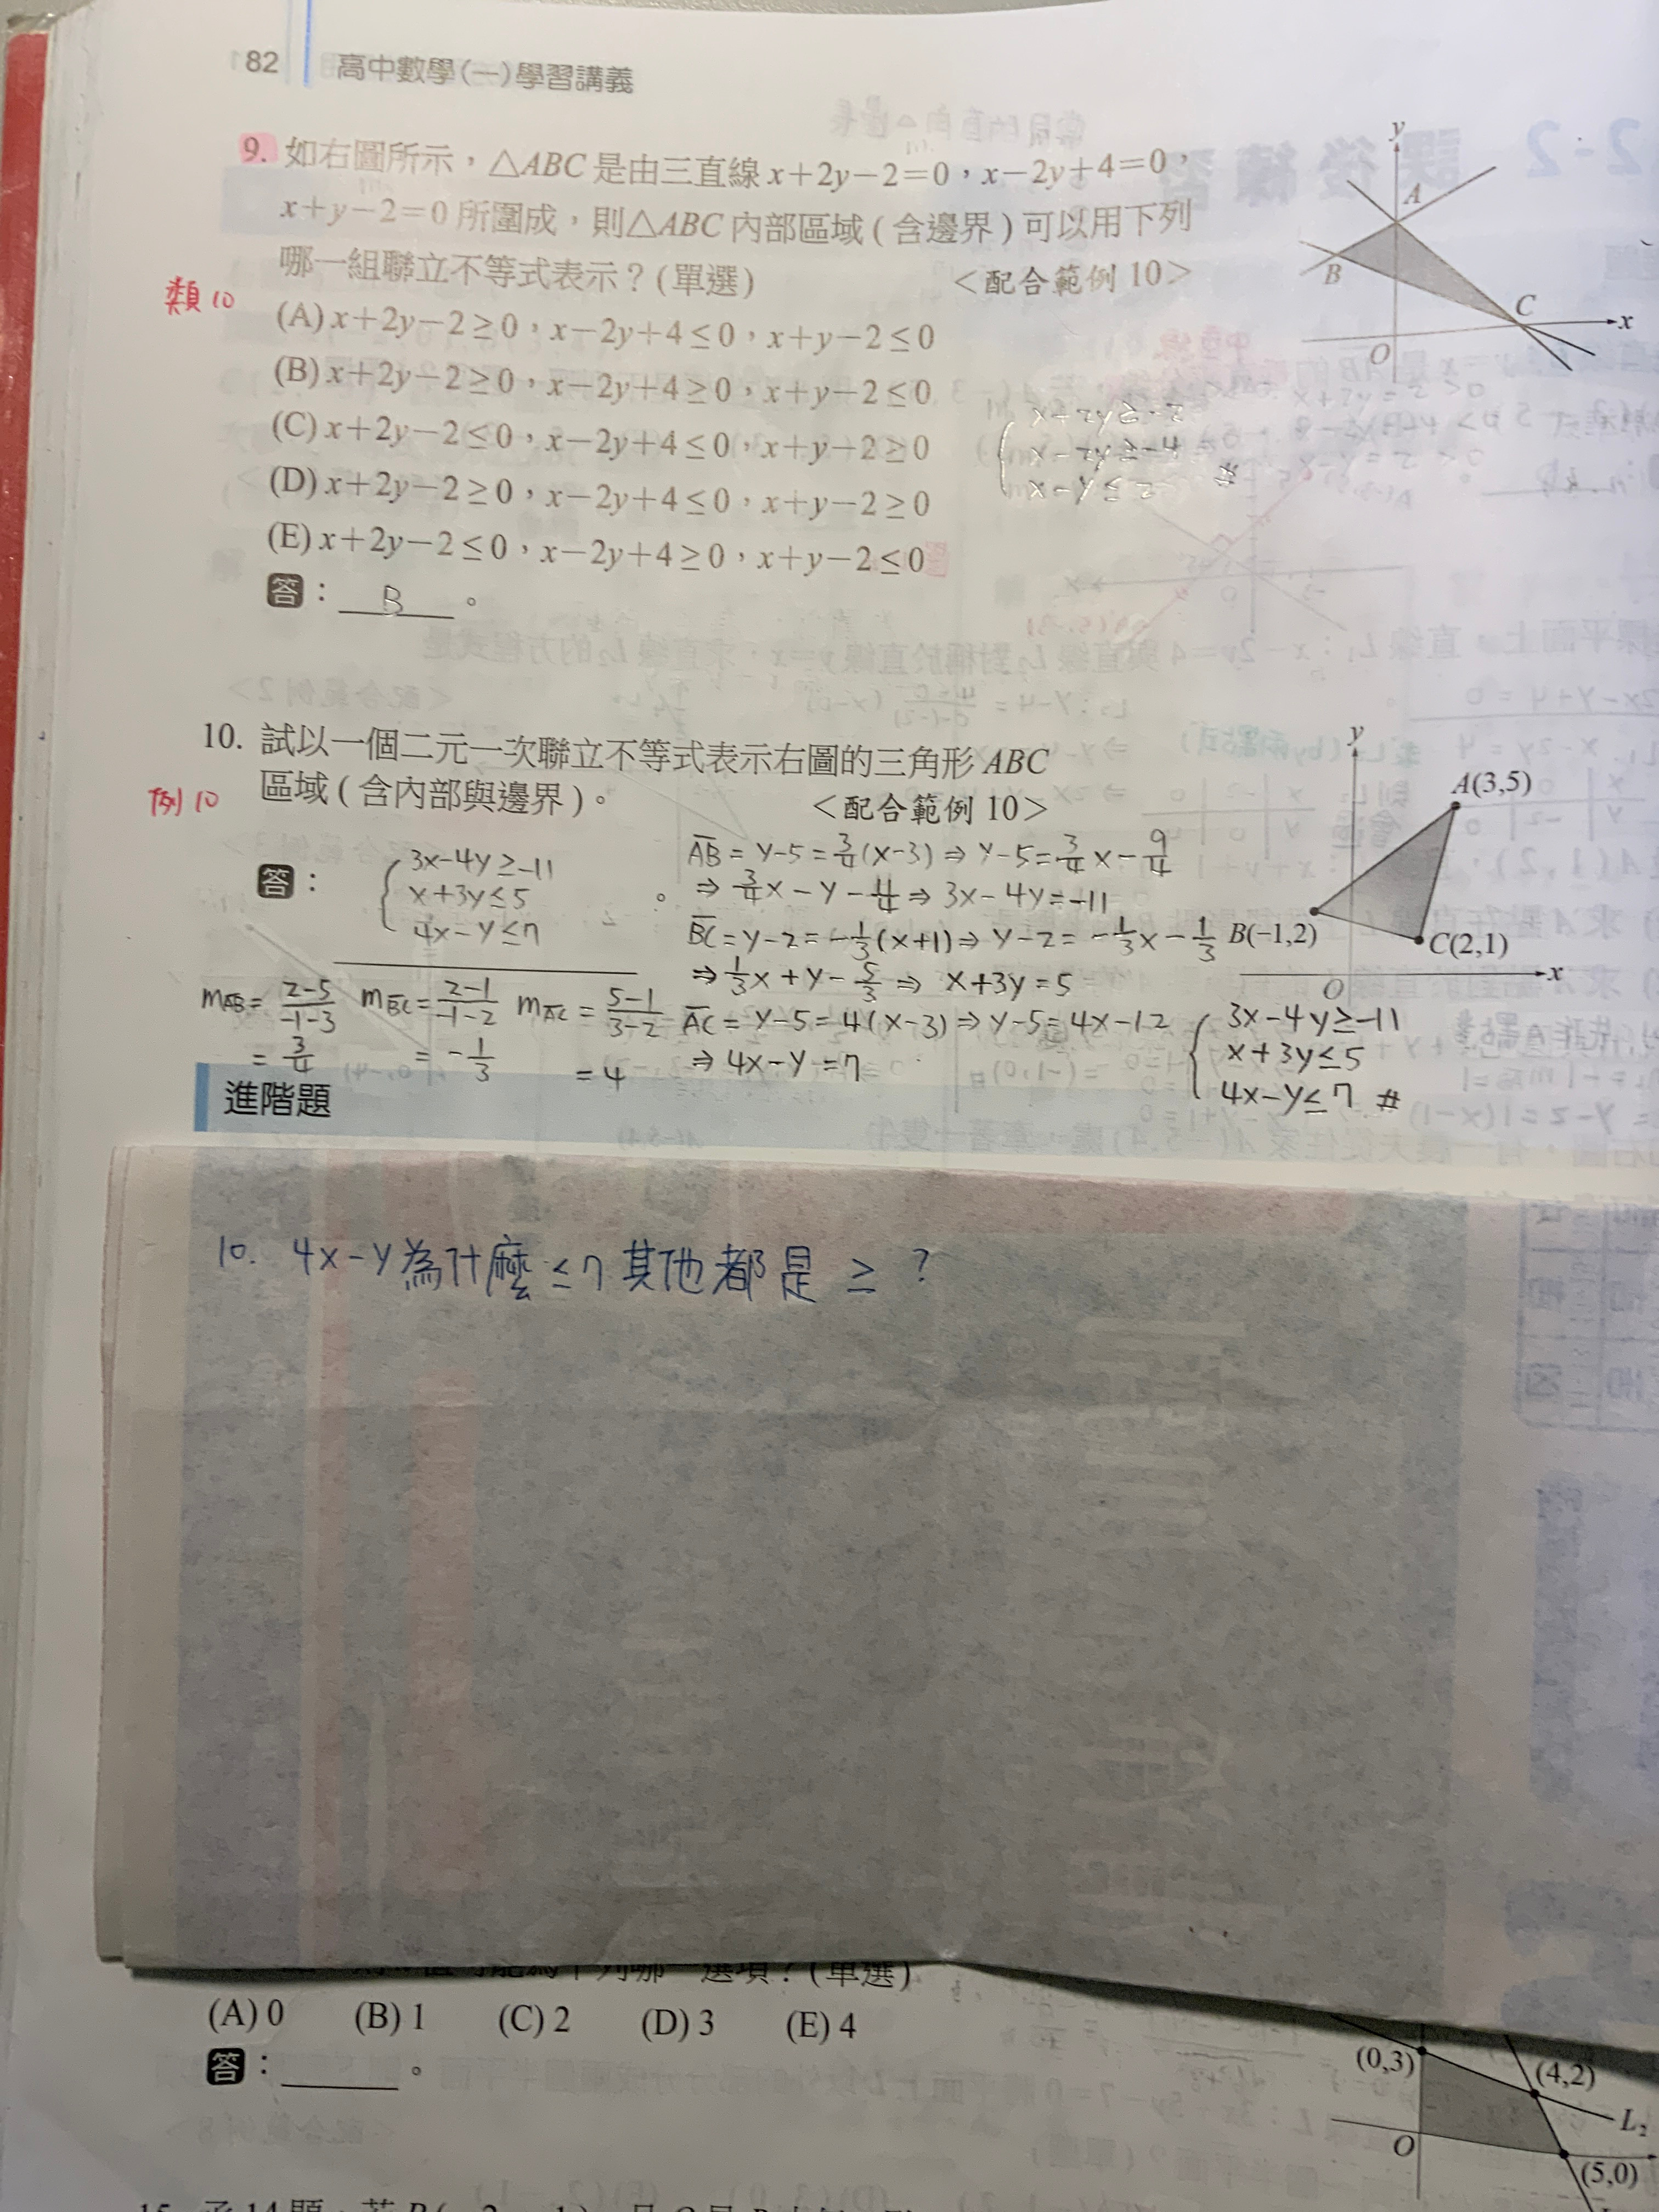 82 高中數學(一)學習講義
9. 如右圖所示，△ABC 是由三直線 x+2y−2=0，x−2y+4=0，
x+y−2=0 所圍成，則△ABC 內部區域(含邊界)可以用下列
哪一組聯立不等式表示？(單選) <配合範例 10>
類10
(A) x+2y−2≥0，x−2y+4≤0，x+y−2≤0
(B) x+2y−2≥0，x−2y+4≥0，x+y−2≤0
(C) x+2y−2≤0，x−2y+4≤0，x+y−2≥0
(D) x+2y−2≥0，x−2y+4≤0，x+y−2≥0
(E) x+2y−2≤0，x−2y+4≥0，x+y−2≤0
答：B。
y
A
B
C
x
O
10. 試以一個二元一次聯立不等式表示右圖的三角形 ABC
區域(含內部與邊界)。 <配合範例 10>
例10
答： 3x-4y≥-11
x+3y≤5
4x-y≤7
。
mAB = 2-5/-1-3 = 3/4
mBC = 2-1/-1-2 = -1/3
mAC = 5-1/3-2 = 4
AB = y-5=3/4(x-3)⇒ y-5=3/4x-9/4
⇒ 3/4x-y-11/4⇒ 3x-4y=-11
BC = y-2=-1/3(x+1)⇒ y-2=-1/3x-1/3
⇒ 1/3x+y-5/3⇒ x+3y=5
AC = y-5=4(x-3)⇒y-5=4x-12
⇒ 4x-y=7
3x-4y≥-11
x+3y≤5
4x-y≤7 #
y
A(3,5)
B(−1,2)
C(2,1)
O
x
進階題
10. 4x-y為什麼≤7其他都是 ≥ ?
哪一選項？(單選)
(A) 0 (B) 1 (C) 2 (D) 3 (E) 4
答：。
(0,3)
(4,2)
L2
O
(5,0)